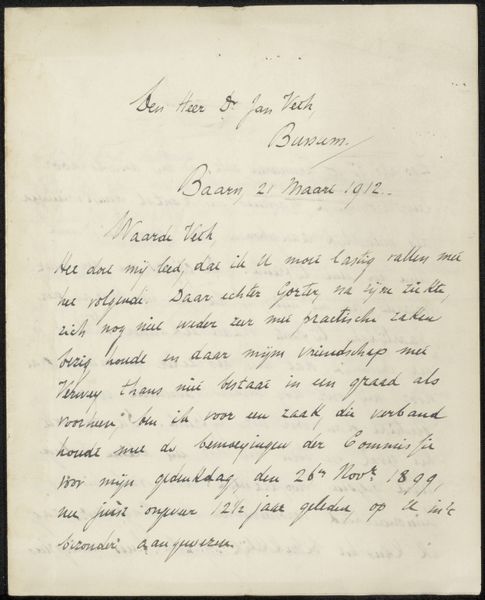 Den Heer Dr Jan Veth,
Bussum.
Baarn 21 Maart 1912.
Waarde Veth
Het doet mij leed, dat ik U moet lastig vallen met
het volgende. Daar echter Gorter, na zijne ziekte,
zich nog niet weder zeer met practische zaken
bezig houdt en daar mijn vriendschap met
Verwey thans niet bestaat in een graad als
voorheen, ben ik voor een zaak, die verband
houdt met de bemoeyingen der Commissie
voor mijn gedenkdag, den 26en Novr 1899,
nu juist ongeveer 12½ jaar geleden, op U in't
bizonder aangewezen.